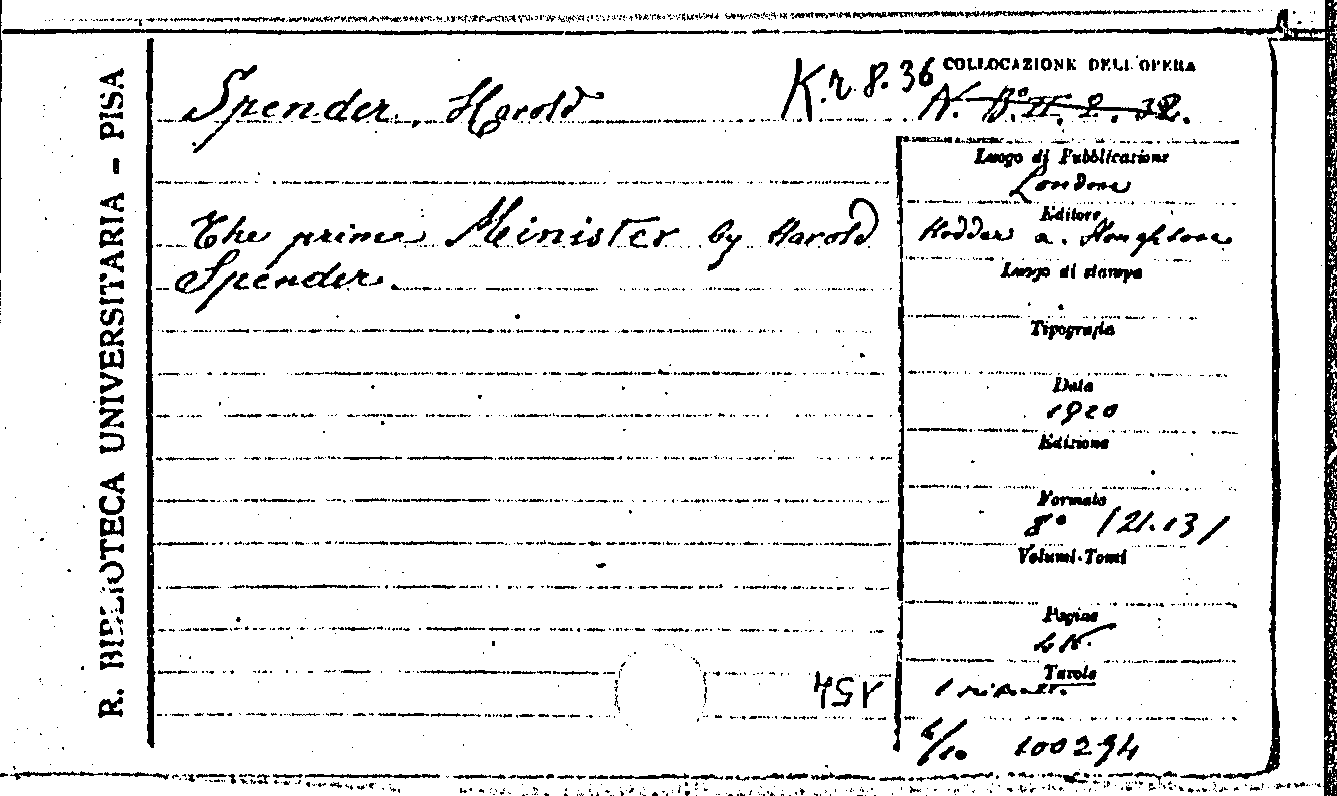 R. BIBLIOTECA UNIVERSITARIA - PISA
COLLOCAZIONE DELL'OPERA
Spender, Harold
K.r.8.36
N. B.º II. 2. 32.
The prime Minister by Harold
Spender.
Luogo di Pubblicazione
London
Editore
Hodder a.
Luogo di stampa
Tipografia
Data
1920
Edizione
Formato
8º (21.13)
Volumi-Tomi
Pagine
Tavole
1
154
100294